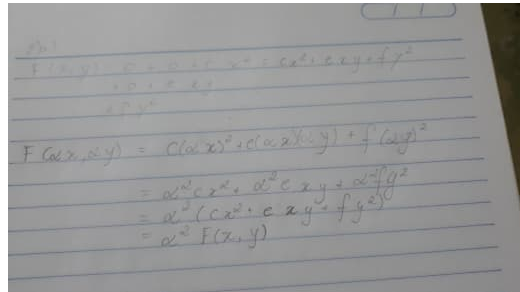 F(x,y) = 0 + 0 + c x² = cx² + exy + fy²
+0 + exy
+fy²
F(αx, αy) = c(αx)² + e(αx)(αy) + f(αy)²
= α²cx² + α²exy + α²fy²
= α²(cx² + exy + fy²)
= α² F(x,y)